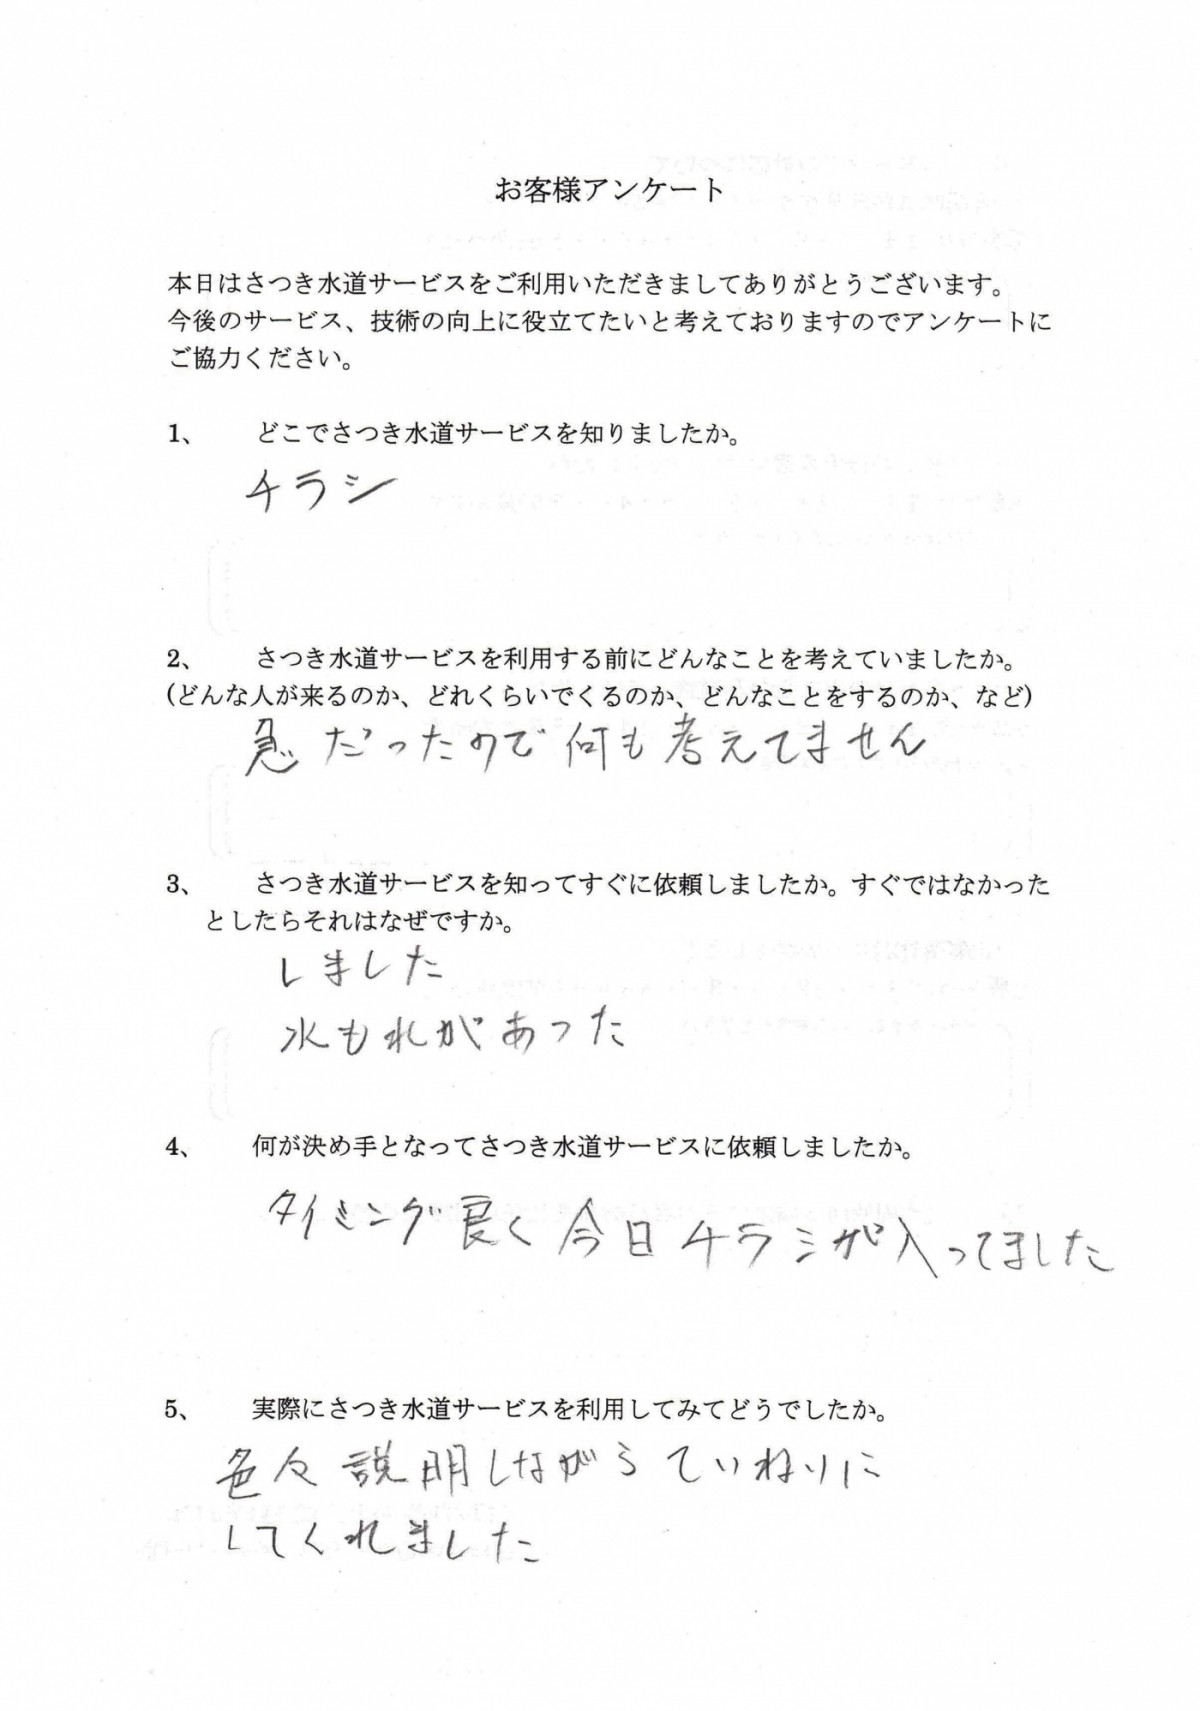 お客様アンケート
本日はさつき水道サービスをご利用いただきましてありがとうございます。
今後のサービス、技術の向上に役立てたいと考えておりますのでアンケートに
ご協力ください。
1、 どこでさつき水道サービスを知りましたか。
チラシ
2、 さつき水道サービスを利用する前にどんなことを考えていましたか。
(どんな人が来るのか、どれくらいでくるのか、どんなことをするのか、など)
急だったので何も考えてません
3、 さつき水道サービスを知ってすぐに依頼しましたか。すぐではなかった
としたらそれはなぜですか。
しました
水もれがあった
4、 何が決め手となってさつき水道サービスに依頼しましたか。
タイミング良く今日チラシが入ってました
5、 実際にさつき水道サービスを利用してみてどうでしたか。
色々説明しながらていねいに
してくれました